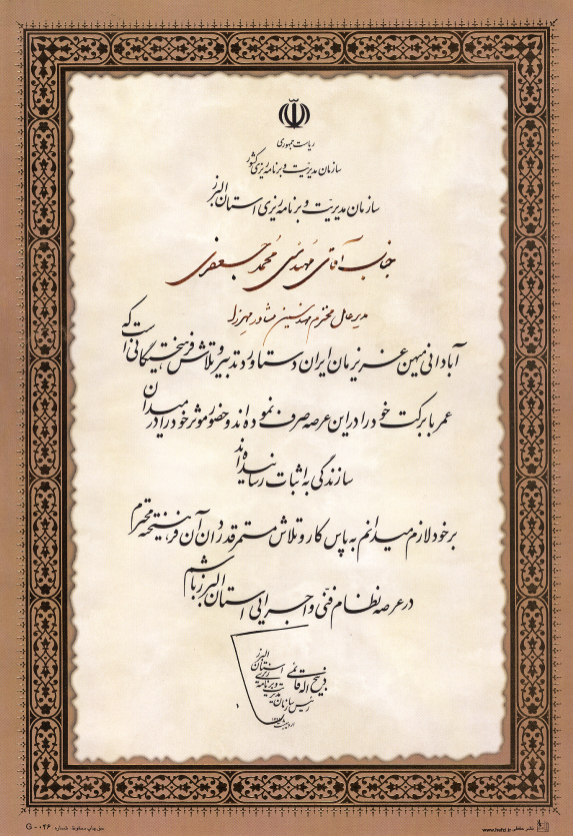 ریاست جمهوری
سازمان مدیریت و برنامه ریزی کشور
سازمان مدیریت و برنامه ریزی استان البرز
جناب آقای مهندس محمد جعفری
مدیرعامل محترم مهندسین مشاور مهرزا
آبادانی میهن عزیزمان ایران دستاورد تدبیر و تلاش فرهیختگانی است که
عمر با برکت خود را در این عرصه صرف نموده اند و حضور موثر خود را در میدان
سازندگی به اثبات رسانیده اند
بر خود لازم میدانم به پاس کار و تلاش مستمر قدردان آن فرهیخته محترم
در عرصه نظام فنی و اجرایی استان البرز باشم
ذبیح اله قائمی
رئیس سازمان مدیریت و برنامه ریزی استان البرز
حق چاپ محفوظ شماره: G - ۰۲۶
www.hafd.ir